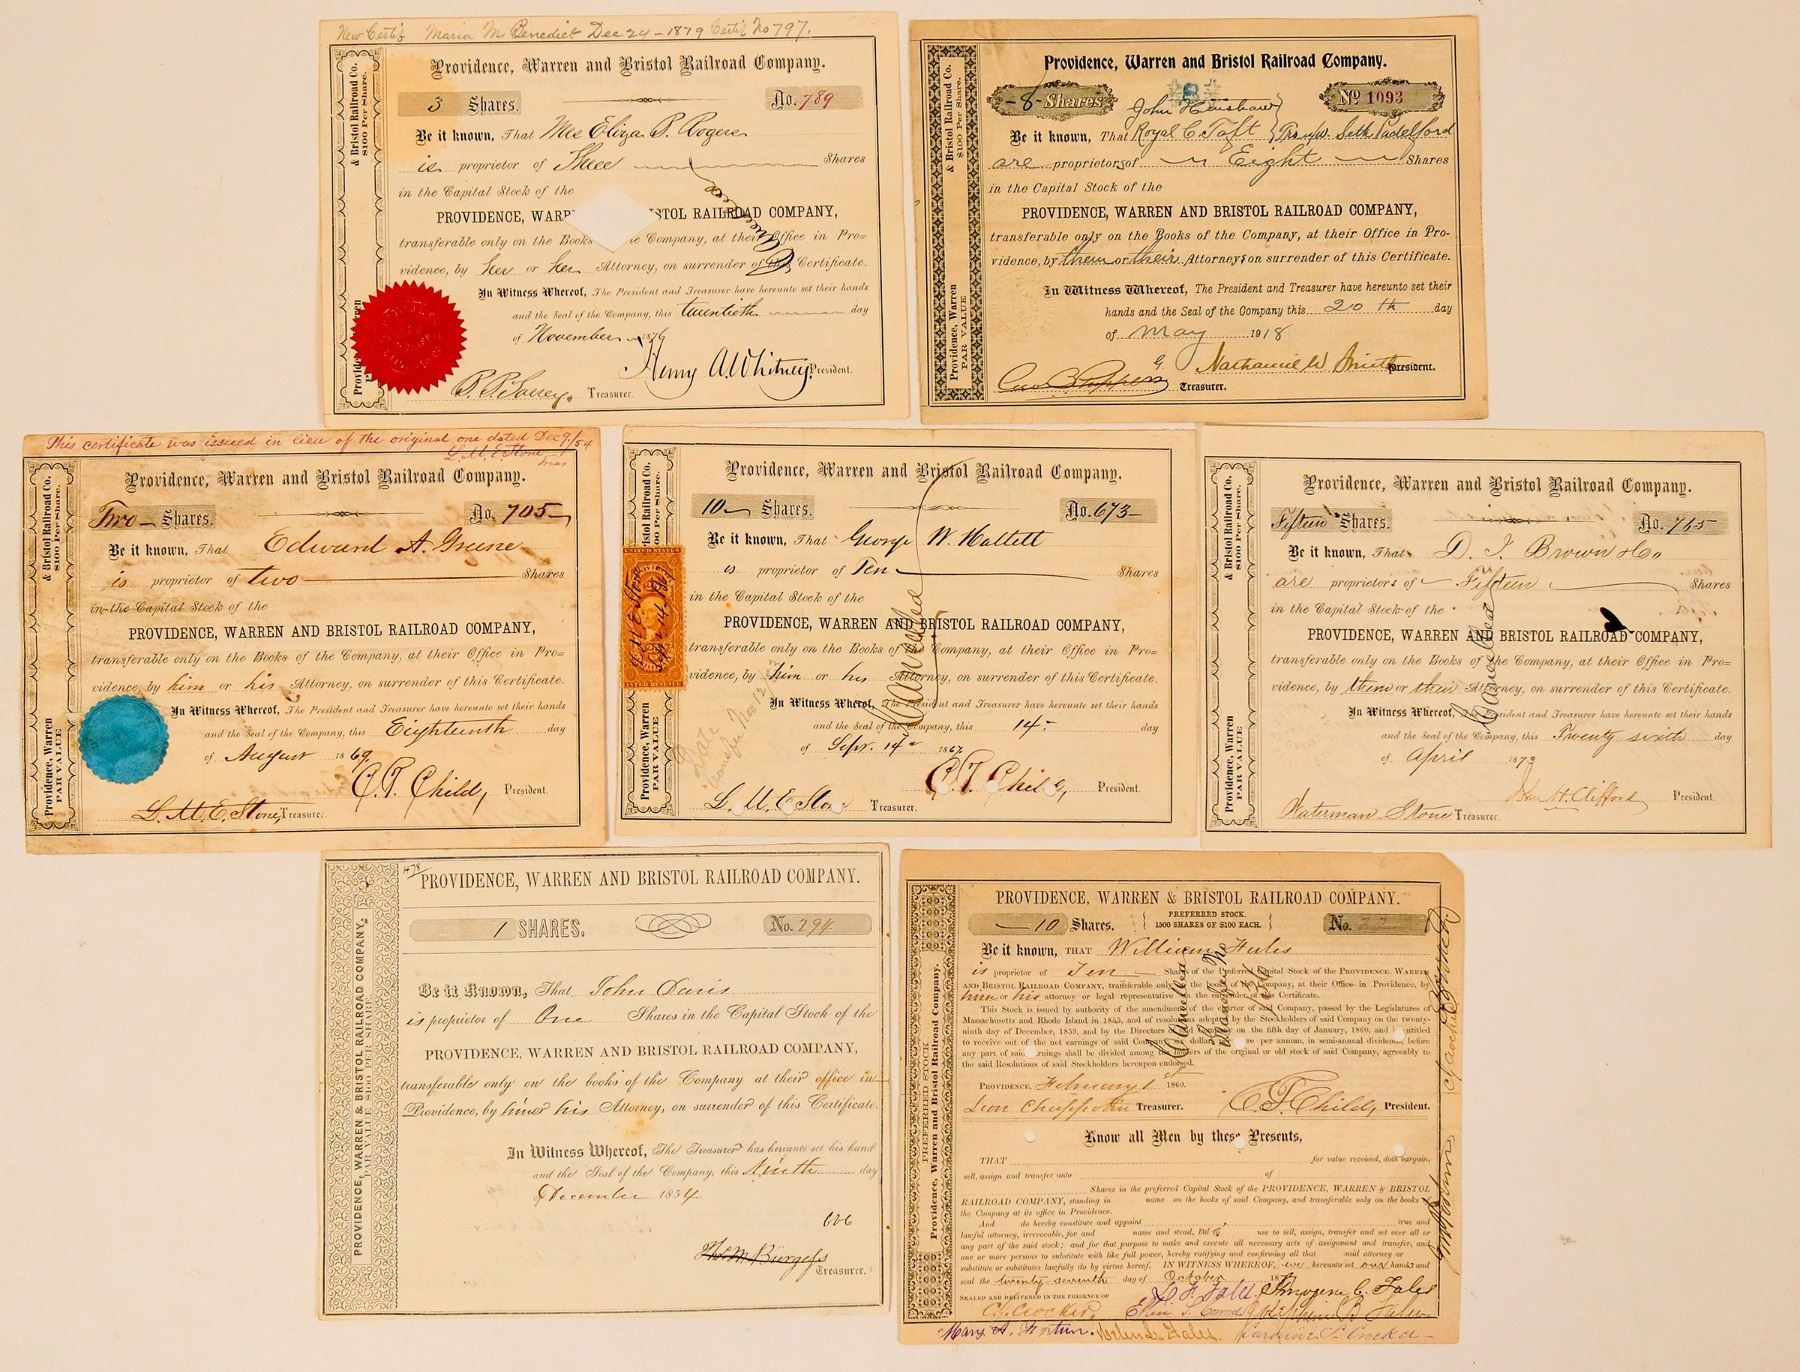 New Certif Maria M Benedict Dec 24 - 1879 Certif No 797.
Providence, Warren and Bristol Railroad Company.
3 Shares. No. 789
Be it known, That Mrs Eliza P. Rogers
is proprietor of Three Shares
in the Capital Stock of the
PROVIDENCE, WARR STOL RAILROAD COMPANY,
transferable only on the Books Company, at their Office in Pro=
vidence, by her or her Attorney, on surrender of this Certificate.
In Witness Whereof, The President and Treasurer have hereunto set their hands
and the Seal of the Company, this twentieth day
of November 1876
Henry A. Whitney President.
Treasurer.
& Bristol Railroad Co.
$100 Per Share.
Providence, Warren and Bristol Railroad Company.
8 Shares Nº 1093
John Henshaw
Be it known, That Royal C. Taft Seth Padelford
are proprietors of Eight Shares
in the Capital Stock of the
PROVIDENCE, WARREN AND BRISTOL RAILROAD COMPANY,
transferable only on the Books of the Company, at their Office in Pro-
vidence, by them or their Attorneys on surrender of this Certificate.
In Witness Whereof, The President and Treasurer have hereunto set their
hands and the Seal of the Company this 20th day
of May 1918
Nathaniel W. Smith President.
Treasurer.
& Bristol Railroad Co.
$100 Per Share.
Providence, Warren
PAR VALUE
This certificate was issued in lieu of the original one dated Dec 9/54
L. M. E. Stone
Providence, Warren and Bristol Railroad Company.
Two Shares. No. 705
Be it known, That Edward A. Greene
is proprietor of two Shares
in the Capital Stock of the
PROVIDENCE, WARREN AND BRISTOL RAILROAD COMPANY,
transferable only on the Books of the Company, at their Office in Pro=
vidence, by him or his Attorney, on surrender of this Certificate.
In Witness Whereof, The President and Treasurer have hereunto set their hands
and the Seal of the Company, this Eighteenth day
of August 1869
C. T. Child, President.
L. M. E. Stone, Treasurer.
& Bristol Railroad Co.
$100 Per Share.
Providence, Warren
PAR VALUE
Providence, Warren and Bristol Railroad Company.
10 Shares. No. 673
Be it known, That George W. Hallett
is proprietor of Ten Shares
in the Capital Stock of the
PROVIDENCE, WARREN AND BRISTOL RAILROAD COMPANY,
transferable only on the Books of the Company, at their Office in Pro=
vidence, by him or his Attorney, on surrender of this Certificate.
In Witness Wherof, The President and Treasurer have hereunto set their hands
and the Seal of the Company, this 14 day
of Sept. 14 1867
C. T. Child, President.
L. M. E. Stone Treasurer.
Cancelled
UNITED STATES
L. M. E. Stone
Sept 14
INTER REVENUE
Bristol Railroad Co.
$100 Per Share.
Providence, Warren
PAR VALUE
Providence, Warren and Bristol Railroad Company.
Fifteen Shares. No. 765
Be it known, That D. T. Brown & Co
are proprietors of Fifteen Shares
in the Capital Stock of the
PROVIDENCE, WARREN AND BRISTOL RAILROAD COMPANY,
transferable only on the Books of the Company, at their Office in Pro=
vidence, by them or their Attorney, on surrender of this Certificate.
In Witness Whereof, The President and Treasurer have hereunto set their hands
and the Seal of the Company, this Twenty sixth day
of April 1873
John H. Clifford President.
Waterman Stone Treasurer.
Cancelled
& Bristol Railroad Co.
$100 Per Share.
Providence, Warren
PAR VALUE
PROVIDENCE, WARREN AND BRISTOL RAILROAD COMPANY.
1 SHARES. No. 294
Be it Known, That John Davis
is proprietor of One Shares in the Capital Stock of the
PROVIDENCE, WARREN AND BRISTOL RAILROAD COMPANY,
transferable only on the books of the Company at their office in
Providence, by him or his Attorney, on surrender of this Certificate.
In Witness Whereof, The Treasurer has hereunto set his hand
and the Seal of the Company, this Ninth day
of December 1854
606
Tho. M. Burgess
Treasurer.
PROVIDENCE, WARREN & BRISTOL RAILROAD COMPANY,
PAR VALUE $100 PER SHARE.
PROVIDENCE, WARREN & BRISTOL RAILROAD COMPANY.
10 Shares. PREFERRED STOCK. No.
1500 SHARES OF $100 EACH.
Be it known, THAT William Fales
is proprietor of Ten Shares of the Preferred Capital Stock of the PROVIDENCE, WARREN
AND BRISTOL RAILROAD COMPANY, transferable only on the books of the Company, at their Office in Providence, by
him or his attorney or legal representative on the surrender of this Certificate.
This Stock is issued by authority of the amendment of the charter of said Company, passed by the Legislatures of
Massachusetts and Rhode Island in 1855, and of resolutions adopted by the Stockholders of said Company on the twenty-
ninth day of December, 1859, and by the Directors on the fifth day of January, 1860, and entitled
to receive out of the net earnings of said Company dollars per annum, in semi-annual dividends, before
any part of said earnings shall be divided among the holders of the original or old stock of said Company, agreeably to
the said Resolutions of said Stockholders hereupon endorsed.
PROVIDENCE, February 1st 1860.
Leon Chappotin Treasurer. C. T. Child, President.
Cancelled
Transfer No 536
Know all Men by these Presents,
THAT for value received, doth bargain,
sell, assign and transfer unto of
Shares in the preferred Capital Stock of the PROVIDENCE, WARREN & BRISTOL
RAILROAD COMPANY, standing in name on the books of said Company, and transferable only on the books of
the Company at its office in Providence.
And do hereby constitute and appoint true and
lawful attorney, irrevocable, for and name and stead, but to use to sell, assign, transfer and set over all or
any part of the said stock; and for that purpose to make and execute all necessary acts of assignment and transfer, and
one or more persons to substitute with like full power, hereby ratifying and confirming all that said attorney or
substitute or substitutes lawfully do by virtue hereof. IN WITNESS WHEREOF, we hereunto set our hands and
seal the twenty seventh day of October
SEALED AND DELIVERED IN THE PRESENCE OF
Imogene C. Fales
Mary A. Horton. Helen L. Fales. Caroline S. Crocker
PREFERRED STOCK
Providence, Warren and Bristol Railroad Company.